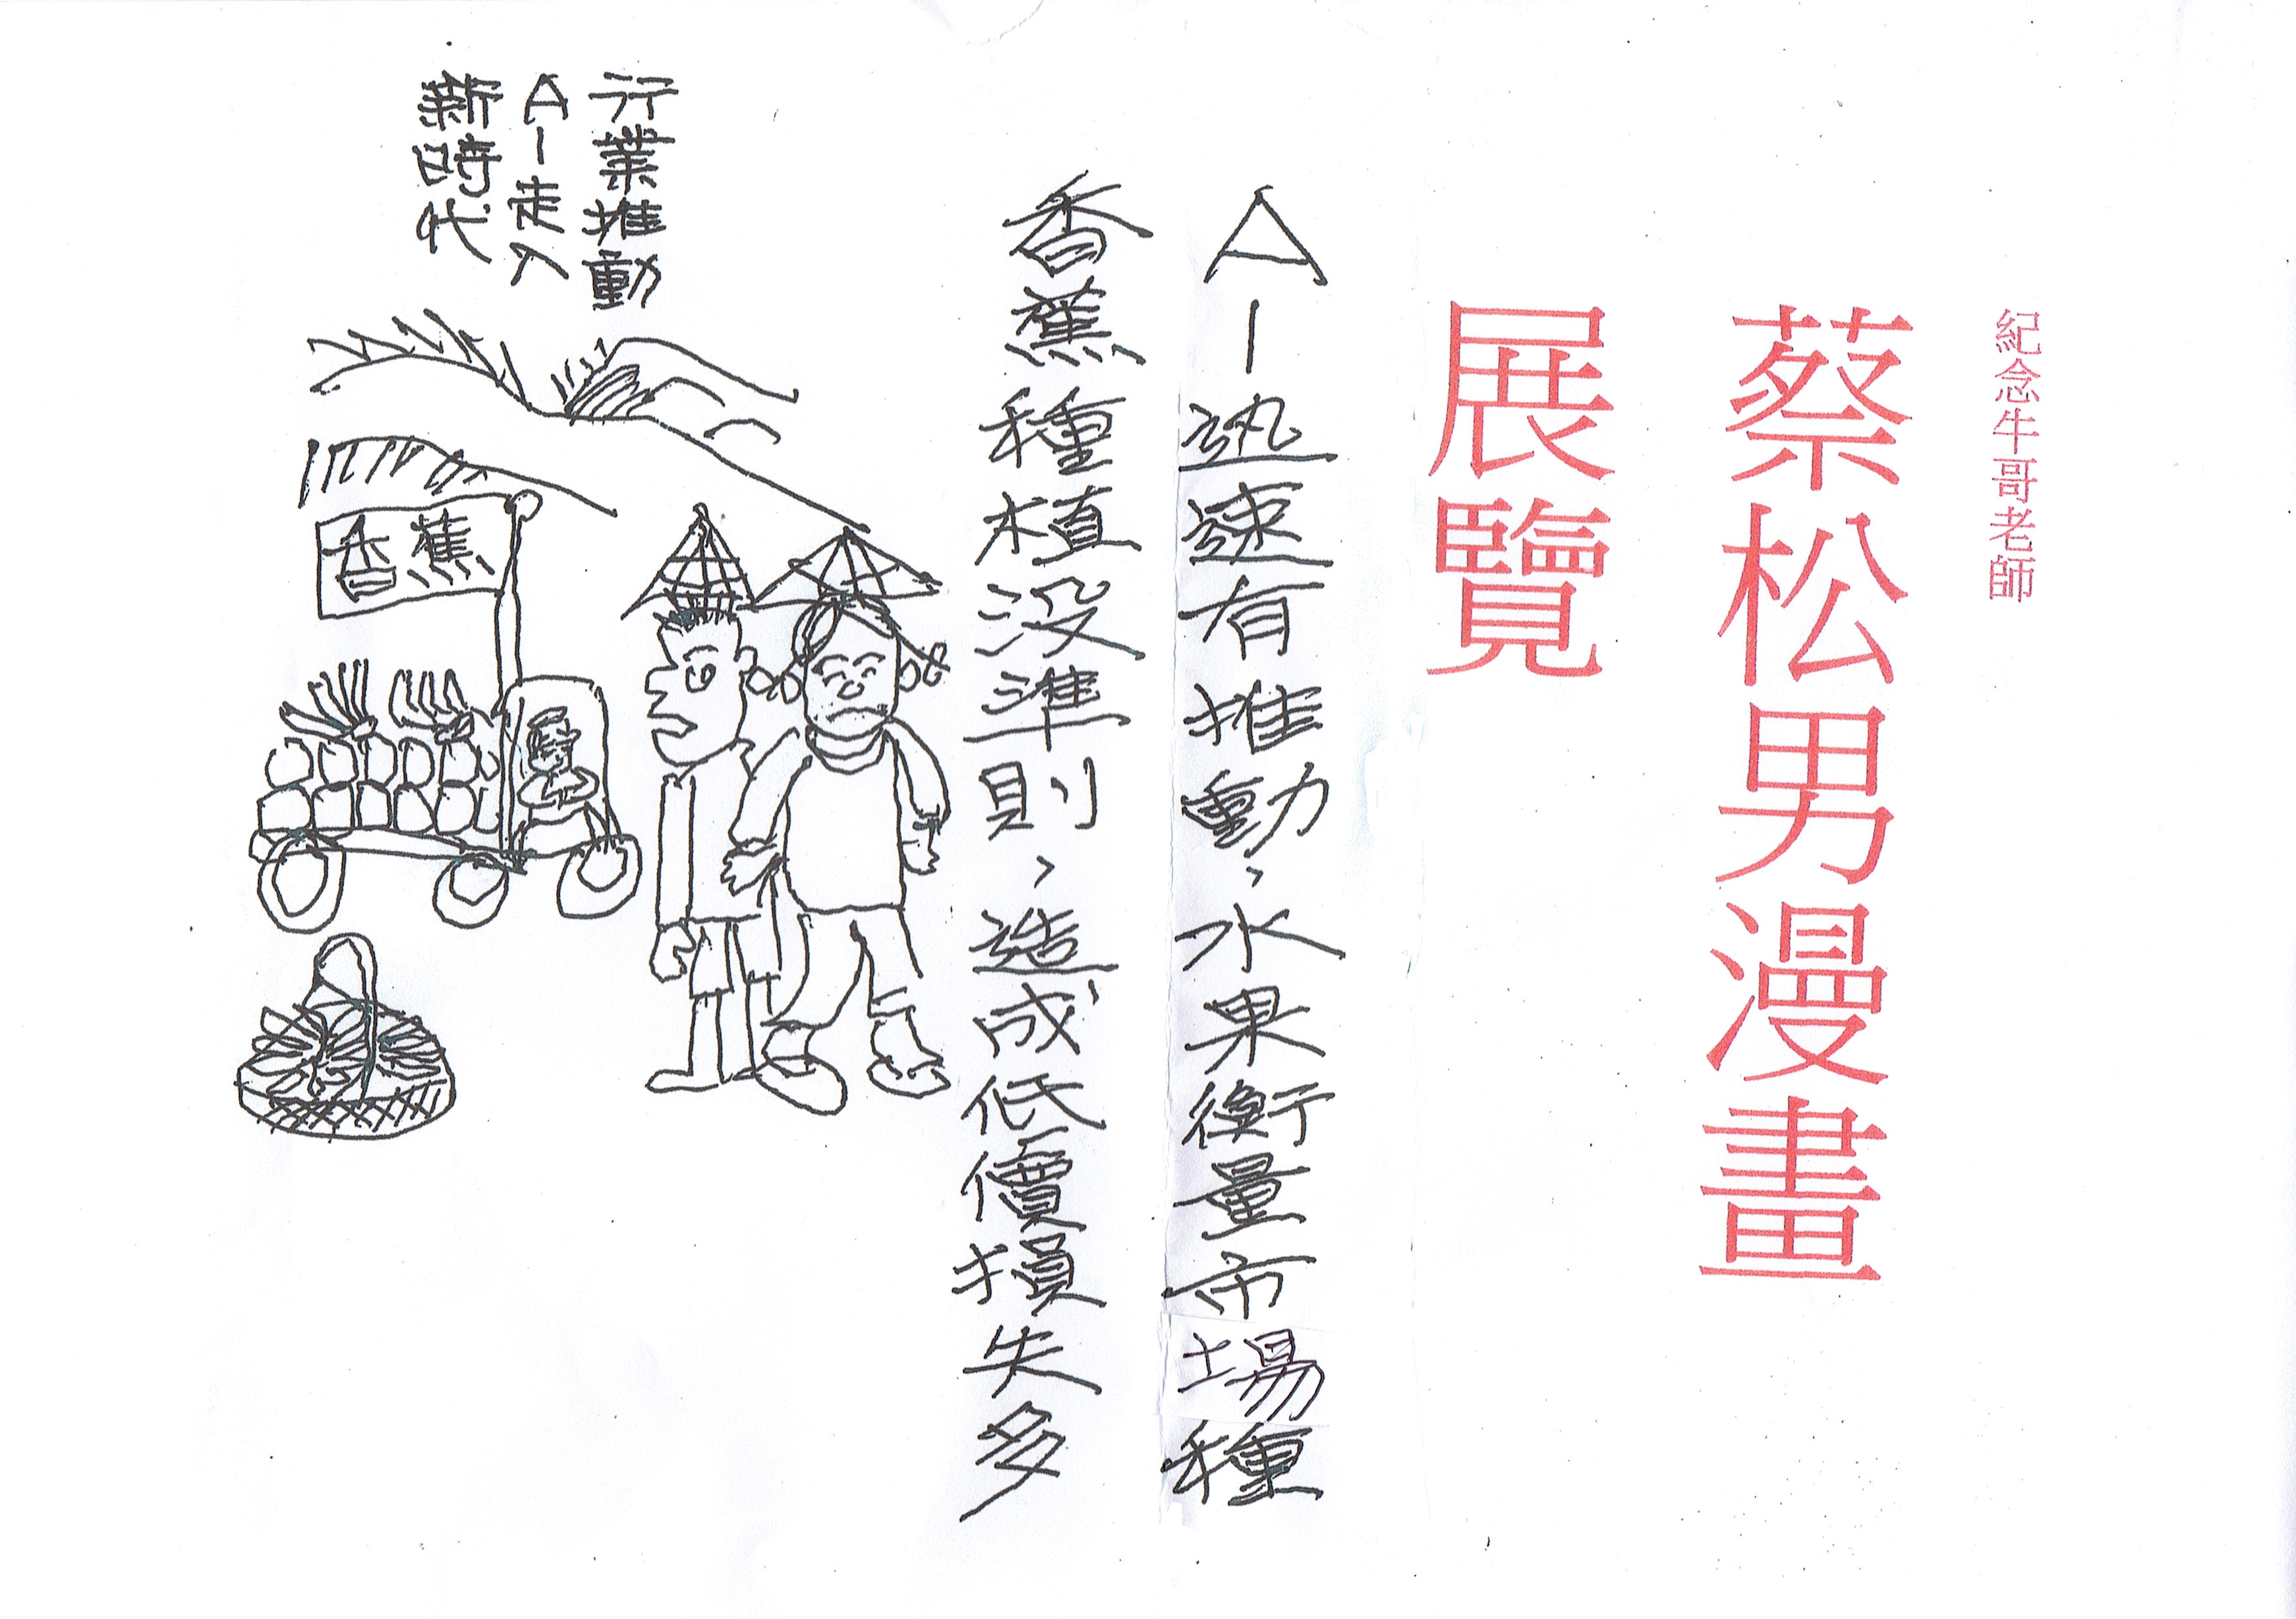 紀念牛哥老師
蔡松男漫畫
展覽
AI迅速有推動，水果衡量市場種
香蕉種植没準則，造成低價損失多
行業推動
AI走入
新時代
香蕉